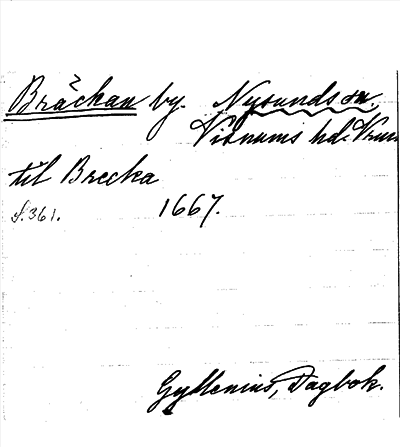 Bräckan by. Nysunds sn.
Visnums hd. Vrml
til Brecka
s. 361. 1667.
Gyllenius, Dagbok.